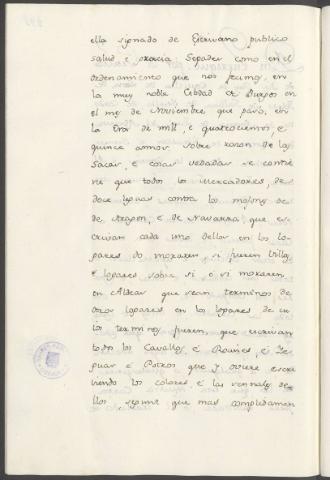 ella signado de Escrivano publico
salud e gracia Sepades como en el
ordenamiento que nos fecimos en
la muy noble Cibdad de Burgos en
el mes de Noviembre que pasó, en
la Era de mill, e quatrocientos, e
quince annos sobre razon de las
Sacas, e cosas vedadas se contie
ne que todos los mercadores, de
doce leguas contra los mojones
de Aragon, e de Navarra, que es-
crivan cada uno dellos en los lo-
gares do moraren, si fueren Villas
e logares sobre si, e si moraren
en Aldeas que sean terminos de
otros logares en los logares de cu
los terminos fueren, que escrivan
todos los Cavallos e Rocines, e Ye
guas e Potros que y oviere escri
biendo los colores e las sennales de-
llos, segunt que mas complidamen